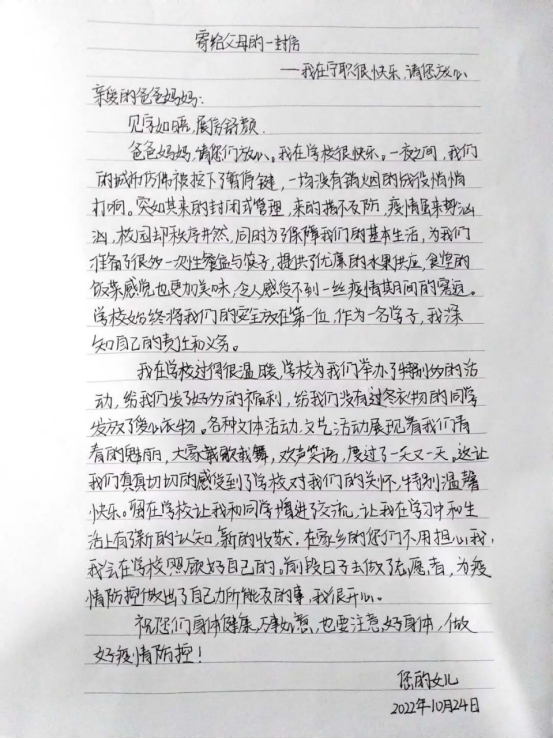 寄给父母的一封信
——我在宁职很快乐,请您放心
亲爱的爸爸妈妈:
见字如晤,展信舒颜.
爸爸妈妈,请您们放心。我在学校很快乐。一夜之间,我们
的城市仿佛被按下了暂停键,一场没有销烟的战役悄悄
打响。突如其来的封闭式管理,来的措不及防,疫情虽来势汹
汹,校园却秩序井然,同时为了保障我们的基本生活,为我们
准备了很多一次性餐盒与筷子,提供了优廉的水果供应,食堂的
饭菜感觉也更加美味,令人感受不到一丝疫情其间的窘迫。
学校始终将我们的安全放在第一位,作为一名学子,我深
知自己的责任和义务。
我在学校过得很温暖,学校为我们举办了特别多的活
动,给我们发了好多的福利,给我们没有过冬衣物的同学
发放了爱心衣物。各种文体活动、文艺活动展现着我们青
春的魅丽,大家载歌载舞,欢声笑语,度过了一天又一天。这让
我们真真切切的感受到了学校对我们的关怀,特别温馨
快乐。留在学校让我和同学增进了交流,让我在学习中和生
活上有了新的认知、新的收获.在家乡的您们不用担心我,
我会在学校照顾好自己的。前段日子去做了志愿者,为疫
情防控做出了自己力所能及的事,我很开心。
祝您们身体健康,万事如意,也要注意好身体,做
好疫情防控!
您的女儿
2022年10月24日